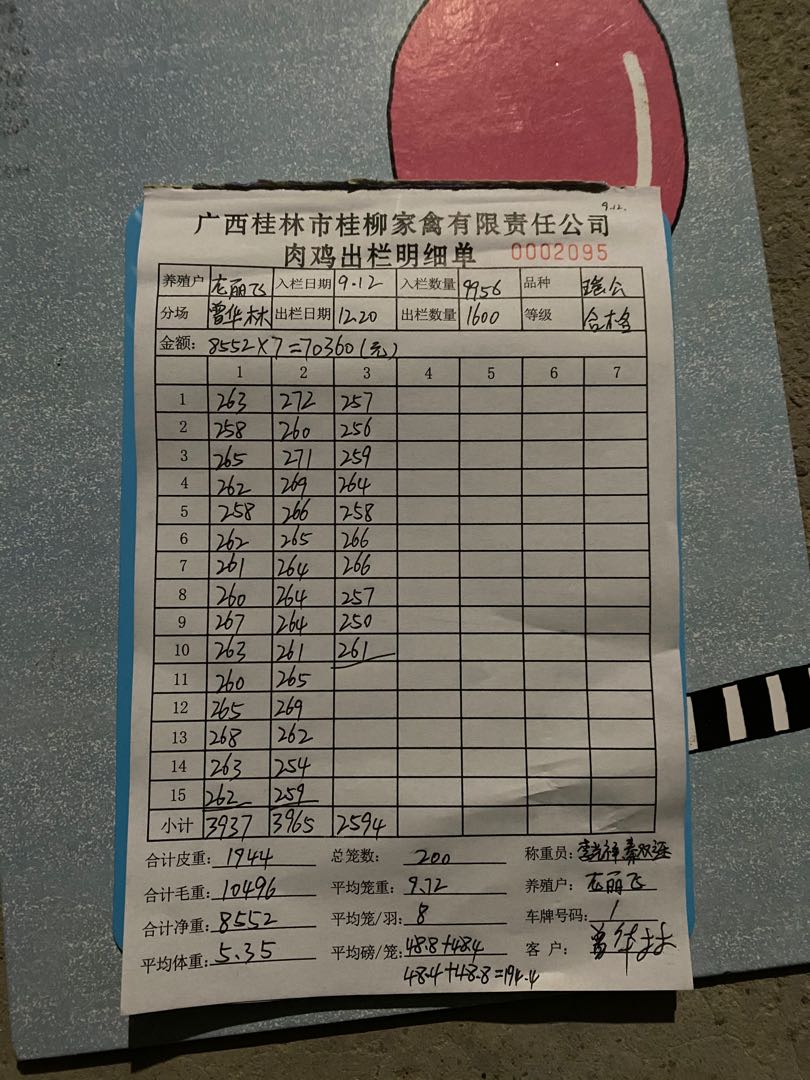 9.12.
广西桂林市桂柳家禽有限责任公司
肉鸡出栏明细单 0002095
养殖户 龙丽飞 入栏日期 9.12 入栏数量 9956 品种 瑶公
分场 曾华林 出栏日期 12.20 出栏数量 1600 等级 合格
金额: 8552×7=70360(元)
1 2 3 4 5 6 7
1 263 272 257
2 258 260 256
3 265 271 259
4 262 269 264
5 258 266 258
6 262 265 266
7 261 264 266
8 260 264 257
9 267 264 250
10 263 261 261
11 260 265
12 265 269
13 268 262
14 263 254
15 262 259
小计 3937 3965 2594
合计皮重: 1944 总笼数: 200 称重员:
合计毛重: 10496 平均笼重: 9.72 养殖户: 龙丽飞
合计净重: 8552 平均笼/羽: 8 车牌号码: 1
平均体重: 5.35 平均磅/笼: 48.8+48.4 客 户: 曾华林
48.4+48.8=194.4